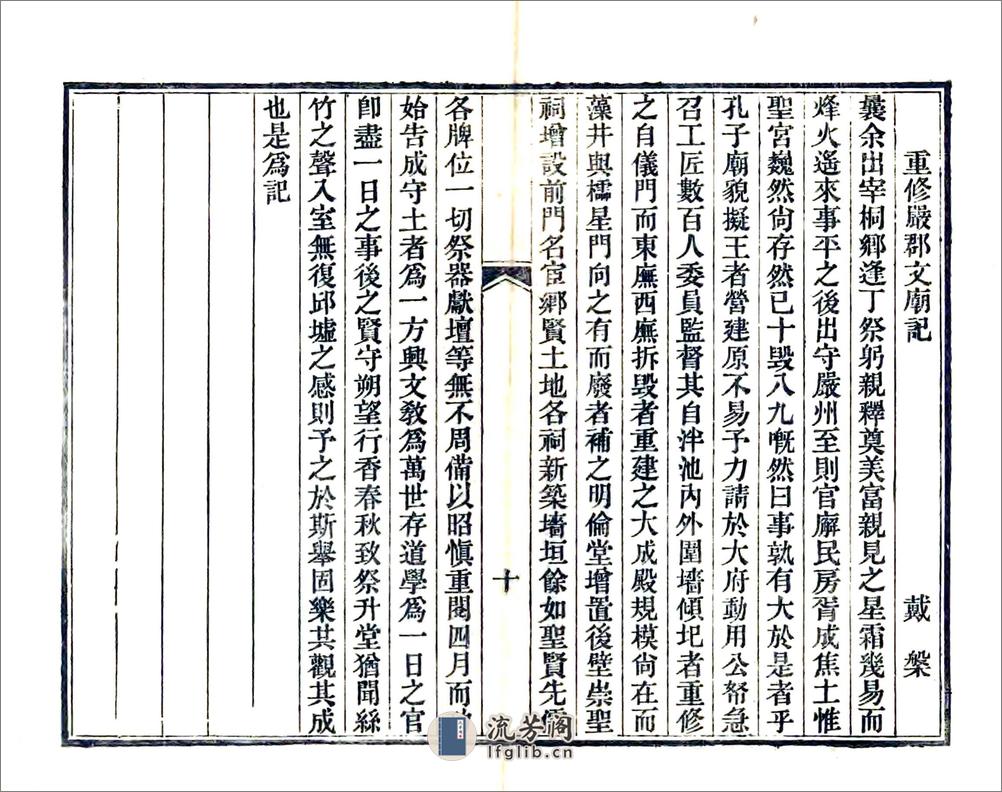 重修嚴郡文廟記
戴槃
曩余出宰桐鄉逢丁祭躬親釋奠美富親見之星霜幾易而
烽火遙來事平之後出守嚴州至則官廨民房胥成焦土惟
聖宮巍然尙存然已十毀八九慨然曰事孰有大於是者乎
孔子廟貌擬王者營建原不易予力請於大府動用公帑急
召工匠數百人委員監督其自泮池內外圍墻傾圮者重修
之自儀門而東廡西廡拆毀者重建之大成殿規模尙在而
藻井與櫺星門向之有而廢者補之明倫堂增置後壁崇聖
祠增設前門名宦鄉賢土地各祠新築墻垣餘如聖賢先儒
十
各牌位一切祭器獻壇等無不周備以昭愼重閱四月而
始告成守土者爲一方興文敎爲萬世存道學爲一日之官
卽盡一日之事後之賢守朔望行香春秋致祭升堂猶聞絲
竹之聲入室無復邱墟之感則予之於斯舉固樂共觀其成
也是爲記
流芳閣
lfglib.cn